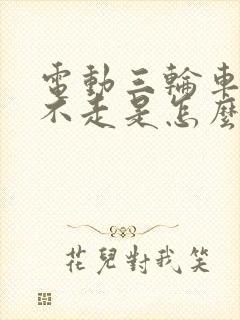 電動三輪車
不走是怎麼
花兒對我笑